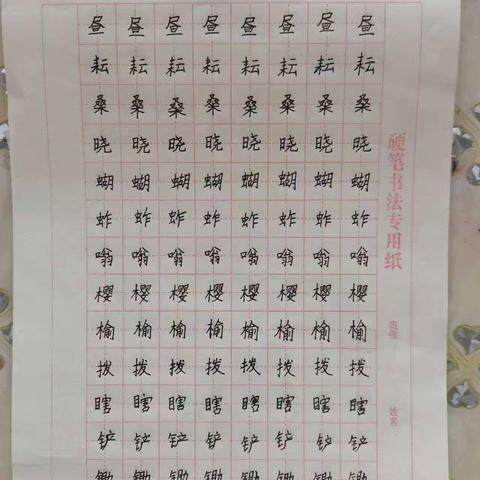 昼昼昼昼昼昼昼昼
耘耘耘耘耘耘耘耘
桑桑桑桑桑桑桑桑
晓晓晓晓晓晓晓晓
蝴蝴蝴蝴蝴蝴蝴蝴
蚱蚱蚱蚱蚱蚱蚱蚱
嗡嗡嗡嗡嗡嗡嗡嗡
樱樱樱樱樱樱樱樱
榆榆榆榆榆榆榆榆
拨拨拨拨拨拨拨拨
瞎瞎瞎瞎瞎瞎瞎瞎
铲铲铲铲铲铲铲铲
锄锄锄锄锄锄锄锄
硬笔书法专用纸
班级
姓名